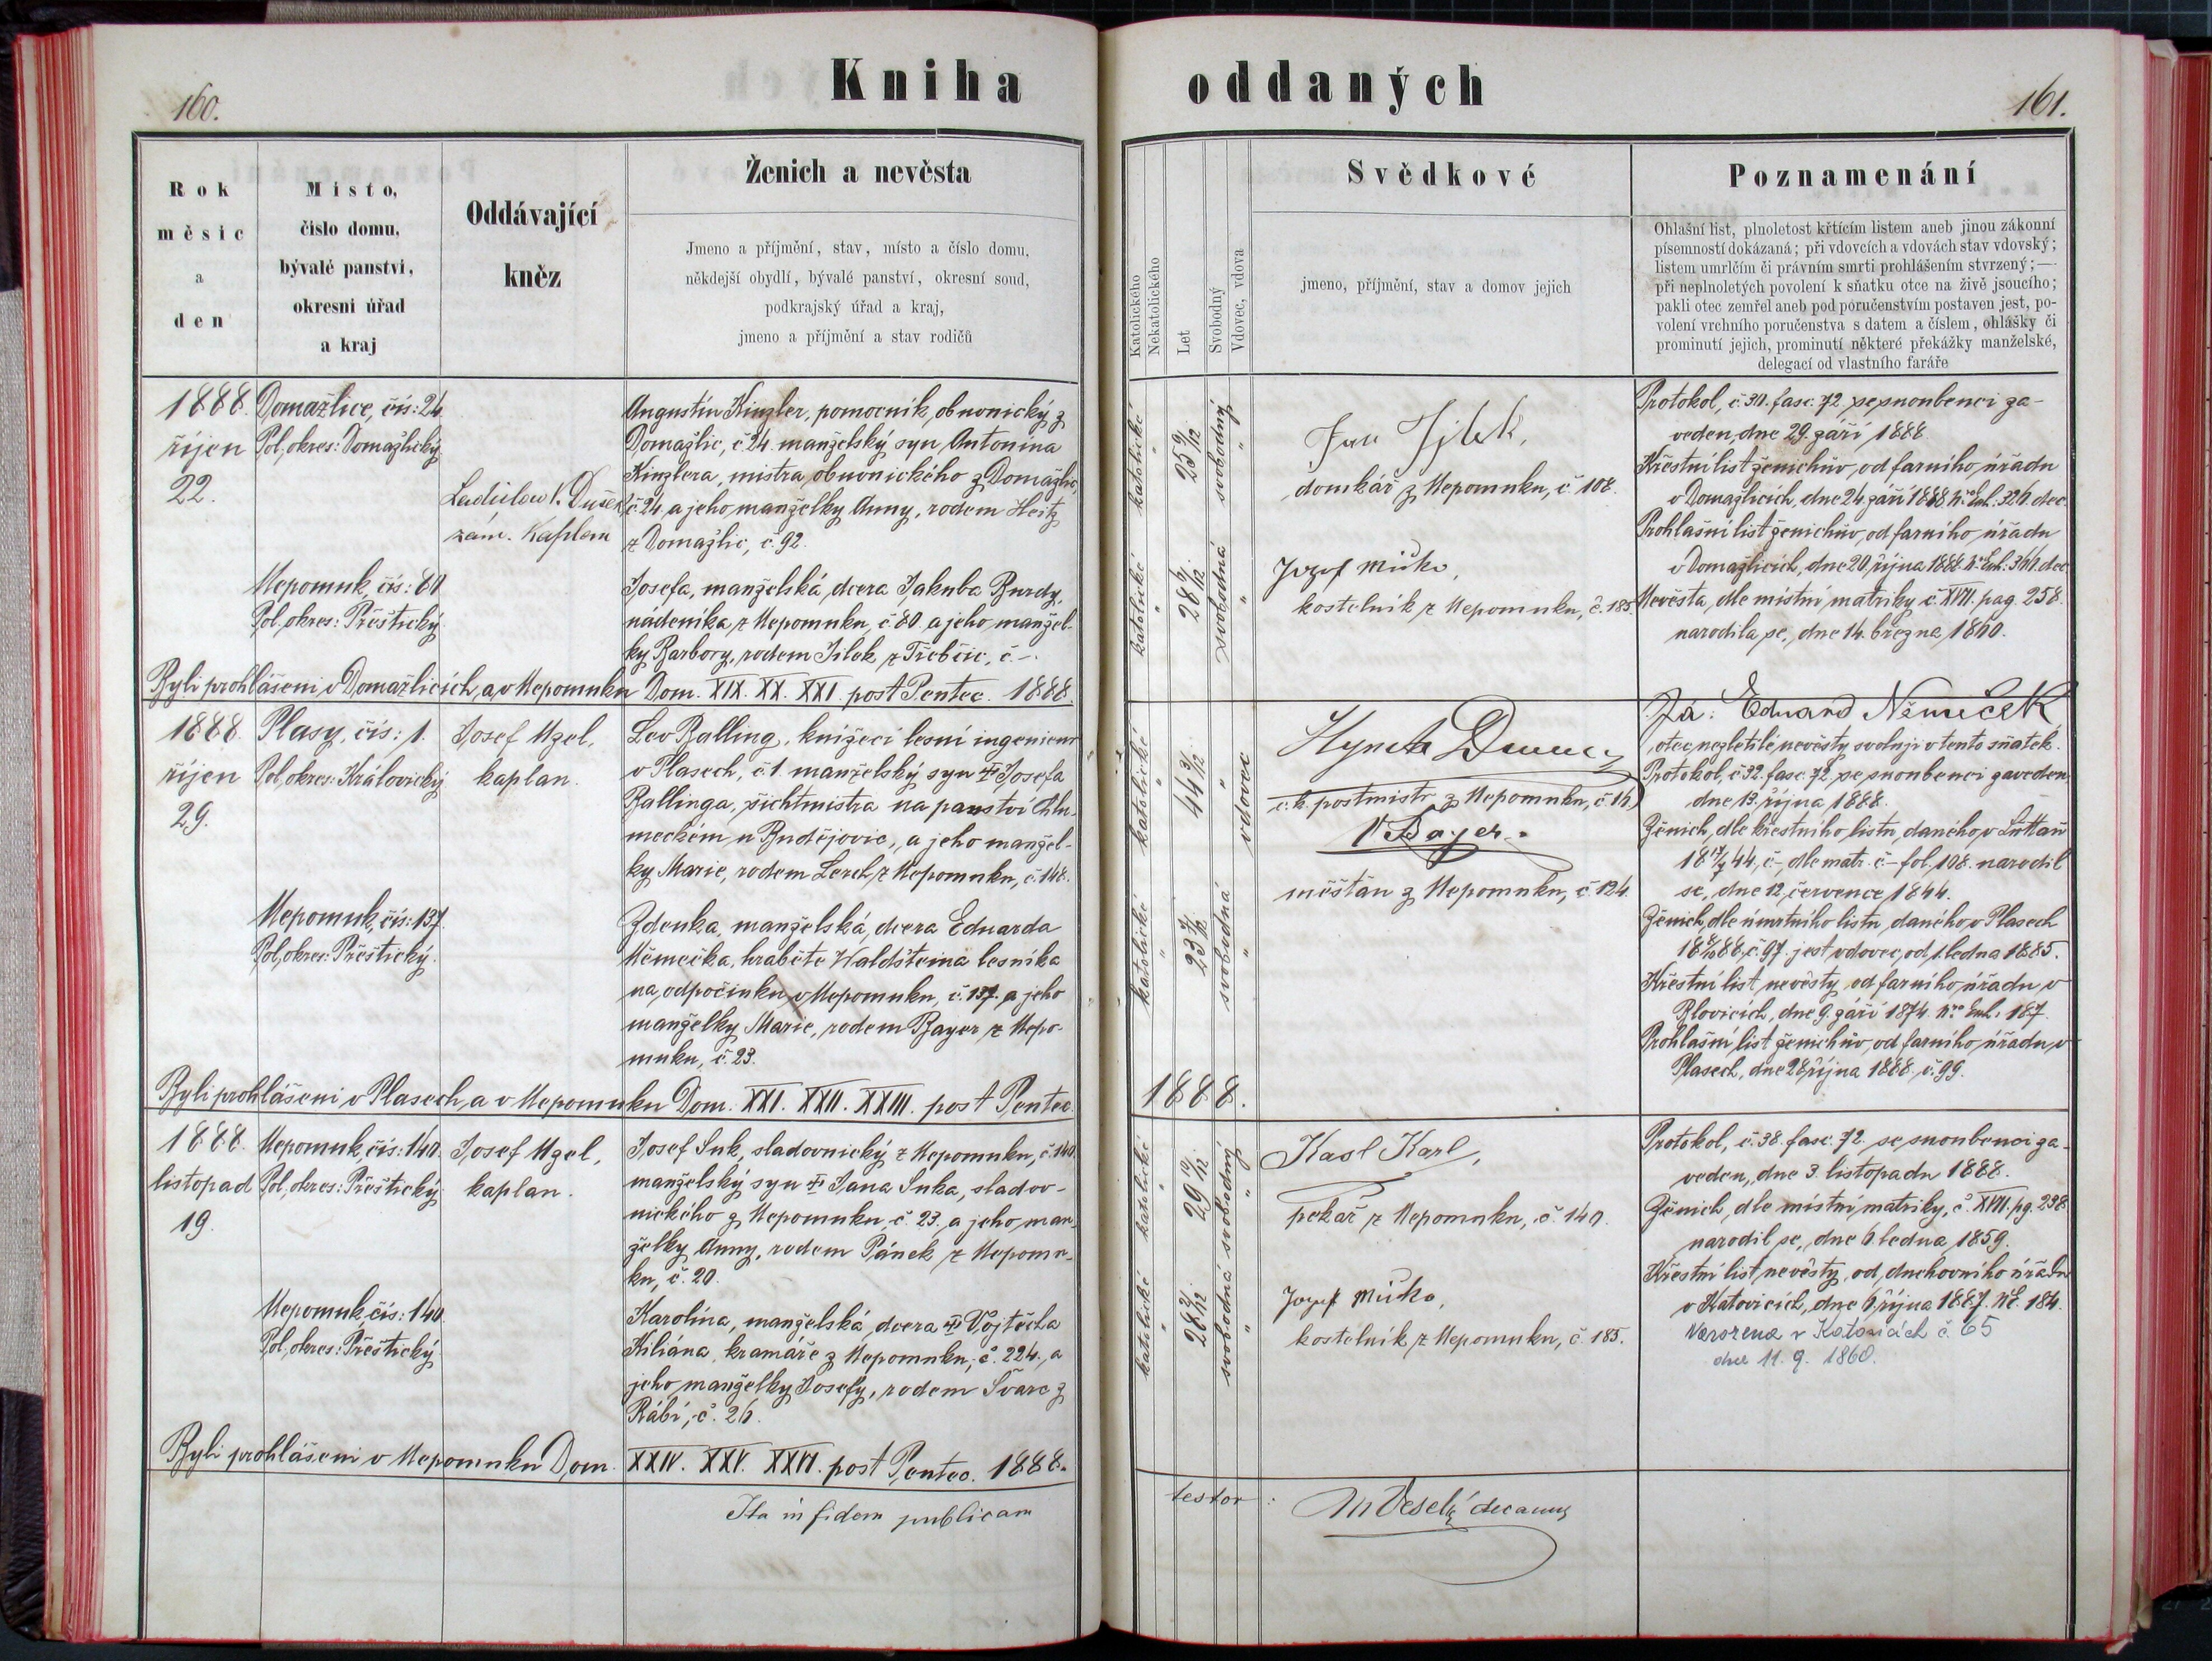 160.
Kniha
Rok
měsíc
a
den
Místo,
číslo domu,
bývalé panství,
okresní úřad
a kraj
Oddávající
kněz
Ženich a nevěsta
Jmeno a příjmění, stav, místo a číslo domu,
někdejší obydlí, bývalé panství, okresní soud,
podkrajský úřad a kraj,
jmeno a příjmění a stav rodičů
1888.
říjen
22.
Domažlice, čís: 24.
Pol. okres: Domažlický
Ladislav V. Dušek
zám. kaplan
Augustin Kinzler, pomocník obuvnický z
Domažlic, č. 24. manželský syn Antonína
Kinzlera, mistra obuvnického z Domažlic,
č. 24. a jeho manželky Anny, rodem Heitz
z Domažlic, č. 92.
Nepomuk, čís: 80
Pol. okres: Přeštický
Josefa, manželská dcera Jakuba Burdy,
nádeníka z Nepomuku, č. 80. a jeho manžel-
ky Barbory, rodem Jílek z Třebčic, č. –.
Byli prohlášeni v Domažlicích, a v Nepomuku Dom. XIX. XX. XXI. post Pentec. 1888.
1888.
říjen
29.
Plasy, čís: 1.
Pol. okres: Královický
Josef Uzel,
kaplan.
Lev Balling, knížecí lesní ingenieur
v Plasech, č. 1. manželský syn † Josefa
Ballinga, šichtmistra na panství Chlu-
meckém u Budějovic, a jeho manžel-
ky Marie, rodem Lerch z Nepomuku, č. 148.
Nepomuk, čís: 137.
Pol. okres: Přeštický.
Zdenka, manželská dcera Eduarda
Němečka, hraběte Waldšteina lesníka
na odpočinku v Nepomuku, č. 137. a jeho
manželky Marie, rodem Bayer z Nepo-
muku, č. 23.
Byli prohlášeni v Plasech, a v Nepomuku Dom. XXI. XXII. XXIII. post Pentec.
1888.
listopad
19.
Nepomuk, čís: 140.
Pol. okres: Přeštický
Josef Uzel,
kaplan.
Josef Suk, sladovnický z Nepomuku, č. 140.
manželský syn † Jana Suka, sladov-
nického z Nepomuku, č. 23. a jeho man-
želky Anny, rodem Pánek z Nepomu-
ku, č. 20.
Nepomuk, čís: 140
Pol. okres: Přeštický
Karolína, manželská dcera † Vojtěcha
Kiliána, kramáře z Nepomuku, č. 224., a
jeho manželky Josefy, rodem Švarc z
Rábí, č. 26.
Byli prohlášeni v Nepomuku Dom. XXIV. XXV. XXVI. post Pentec. 1888.
Ita in fidem publicam
oddaných
161.
Katolického
Nekatolického
Let
Svobodný
Vdovec, vdova
Svědkové
jmeno, příjmění, stav a domov jejich
Poznamenání
Ohlašní list, plnoletost křtícím listem aneb jinou zákonní
písemností dokázaná; při vdovcích a vdovách stav vdovský;
listem umrlčím či právním smrti prohlášením stvrzený; —
při neplnoletých povolení k sňatku otce na živě jsoucího;
pakli otec zemřel aneb pod poručenstvím postaven jest, po-
volení vrchního poručenstva s datem a číslem, ohlášky či
prominutí jejich, prominutí některé překážky manželské,
delegací od vlastního faráře
katolické
25 9/12
svobodný
Jan Jílek,
domkář z Nepomuku, č. 108.
katolické
28 7/12
svobodná
Jozef Míčko,
kostelník z Nepomuku, č. 185
Protokol, č. 30. fasc. 72. se snoubenci za-
veden, dne 29. září 1888.
Křestní list ženichův, od farního úřadu
v Domažlicích, dne 24. září 1888. Nro Exh: 326 dec.
Prohlašní list ženichův, od farního úřadu
v Domažlicích, dne 20. října 1888. Nro Exh: 360 dec
Nevěsta, dle místní matriky č. XVII. pag. 258.
narodila se, dne 14. března 1860.
katolické
44 3/12
vdovec
c. k. postmistr z Nepomuku, č. 16.
V Bayer
měšťan z Nepomuku, č. 124.
katolické
svobodná
Já: Eduard Němeček
otec nezletilé nevěsty svoluji v tento sňatek.
Protokol, č. 32. fasc. 72. se snoubenci zaveden
dne 13. října 1888.
Ženich, dle křestního listu, daného v
44, č. –, dle matr. č. – fol. 108. narodil
se, dne 12. července 1844.
Ženich, dle úmrtního listu, daného v Plasech
88, č. 97. jest vdovec, od 1. ledna 1885.
Křestní list nevěsty, od farního úřadu v
Blovicích, dne 9. září 1874. Nro Exh: 187.
Prohlašní list ženichův, od farního úřadu v
Plasech, dne 28. října 1888, č. 99.
1888.
katolické
29 10/12
svobodný
Kasl Karl,
pekař z Nepomuku, č. 140.
katolické
28 2/12
svobodná
Jozef Míčko,
kostelník z Nepomuku, č. 185.
Protokol, č. 38. fasc. 72. se snoubenci za-
veden, dne 3. listopadu 1888.
Ženich, dle místní matriky, č. XVII. pg. 238
narodil se, dne 6. ledna 1859.
Křestní list nevěsty, od duchovního úřadu
v Katovicích, dne 6. října 1887. NE. 184.
Narozena v Katovicích č. 65
dne 11. 9. 1860.
testor:
M Veselý decanus